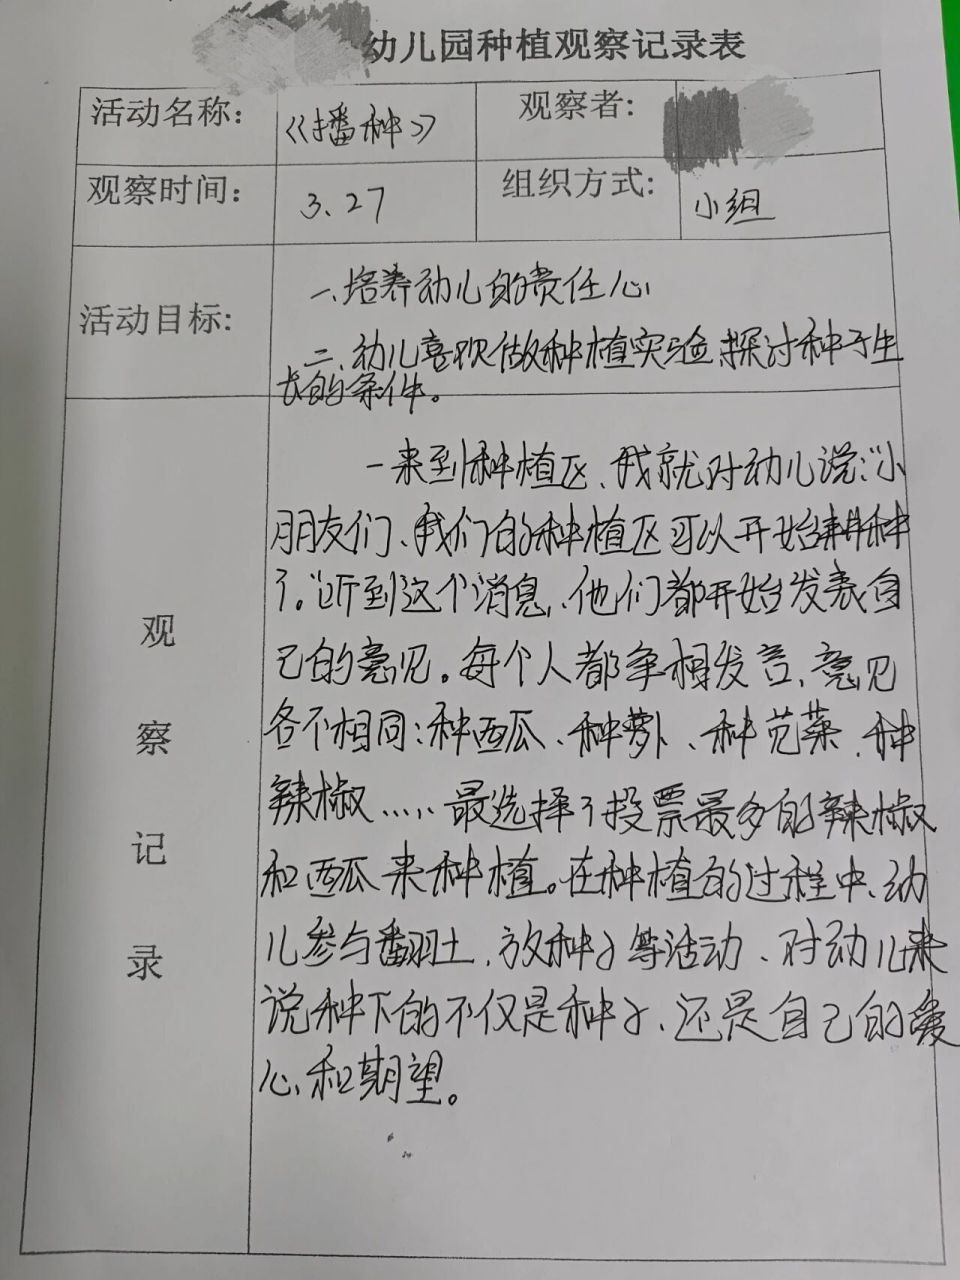 幼儿园种植观察记录表
活动名称: 《播种》 观察者:
观察时间: 3.27 组织方式: 小组
活动目标:
一、培养幼儿的责任心
二、幼儿喜欢做种植实验,探讨种子生
长的条件。
观察记录
一来到种植区、我就对幼儿说:“小
朋友们、我们的种植区可以开始耕种
了。”听到这个消息、他们都开始发表自
己的意见。每个人都争相发言、意见
各不相同:种西瓜、种萝卜、种苋菜、种
辣椒……最选择了投票最多的辣椒
和西瓜来种植。在种植的过程中、幼
儿参与翻土、放种子等活动、对幼儿来
说种下的不仅是种子、还是自己的爱
心和期望。